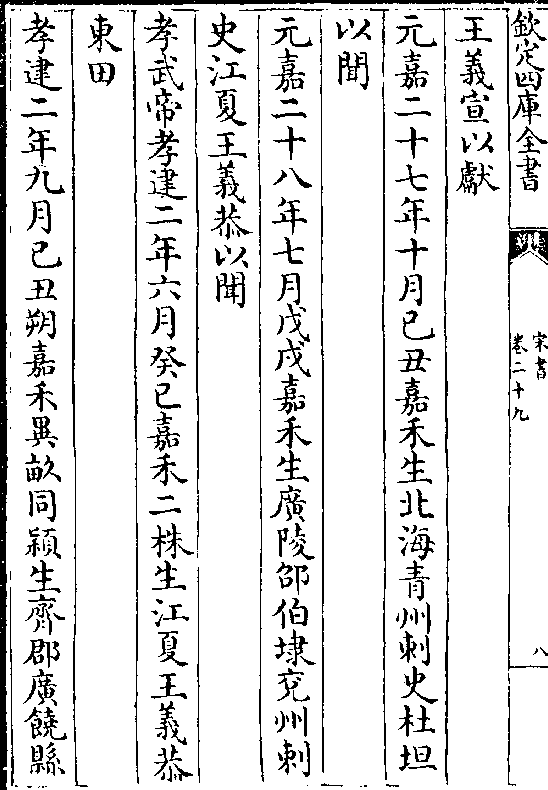 欽定四庫全書
宋書
卷二十九
八
王義宣以獻
元嘉二十七年十月已丑嘉禾生北海青州刺史杜坦
以聞
元嘉二十八年七月戊戌嘉禾生廣陵邵伯埭兖州刺
史江夏王義恭以聞
孝武帝孝建二年六月癸已嘉禾二株生江夏王義恭
東田
孝建二年九月已丑朔嘉禾異畝同穎生齊郡廣饒縣